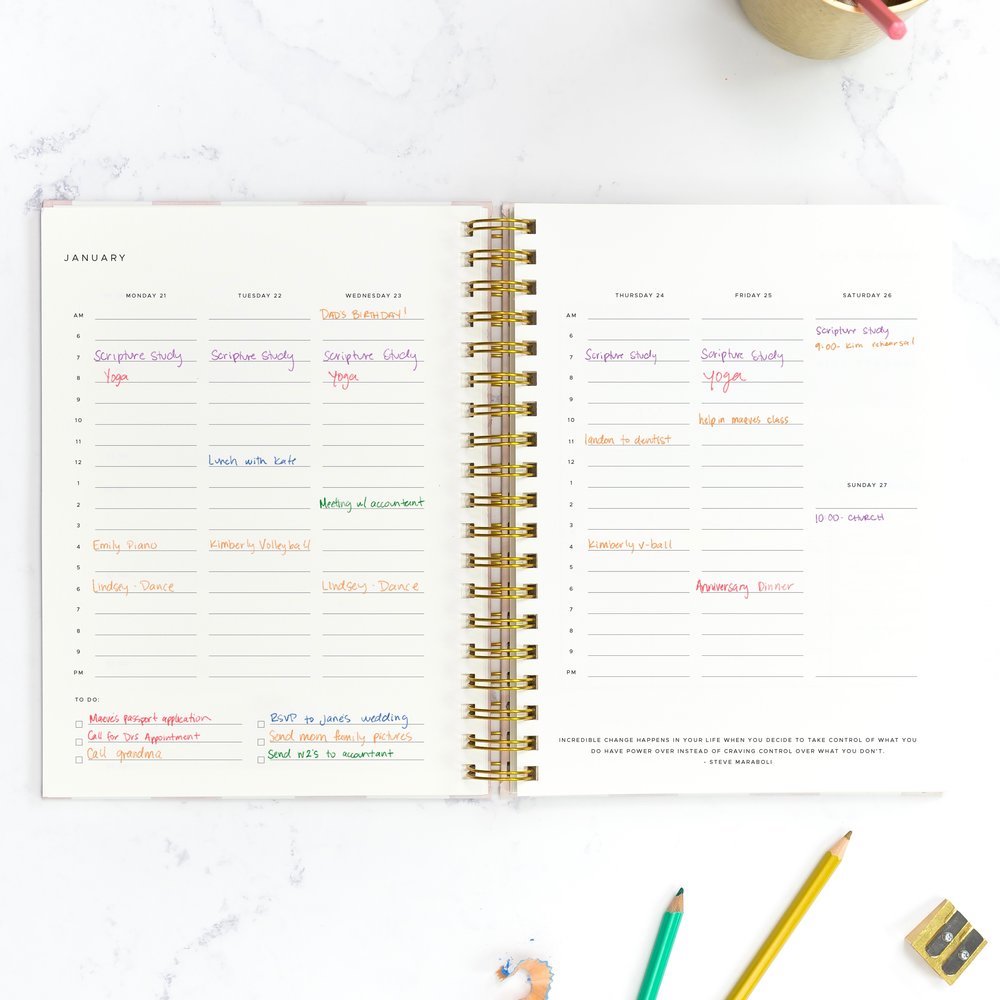 JANUARY
MONDAY 21 TUESDAY 22 WEDNESDAY 23
AM DAD'S BIRTHDAY!
6
7 Scripture Study Scripture Study Scripture Study
8 Yoga Yoga
9
10
11
12 Lunch with Kate
1
2 Meeting w/ accountant
3
4 Emily Piano Kimberly Volleyball
5
6 Lindsey - Dance Lindsey - Dance
7
8
9
PM
TO DO:
Maeve's passport application
Call for Drs Appointment
Call grandma
RSVP to Jane's wedding
Send mom family pictures
Send W2's to accountant
THURSDAY 24 FRIDAY 25 SATURDAY 26
AM
6 Scripture Study
7 Scripture Study Scripture Study 9:00- Kim rehearsal
8 Yoga
9
10 help in maeves class
11 landon to dentist
12
1 SUNDAY 27
2
3 10:00- CHURCH
4 Kimberly v-ball
5
6 Anniversary Dinner
7
8
9
PM
INCREDIBLE CHANGE HAPPENS IN YOUR LIFE WHEN YOU DECIDE TO TAKE CONTROL OF WHAT YOU
DO HAVE POWER OVER INSTEAD OF CRAVING CONTROL OVER WHAT YOU DON'T.
- STEVE MARABOLI